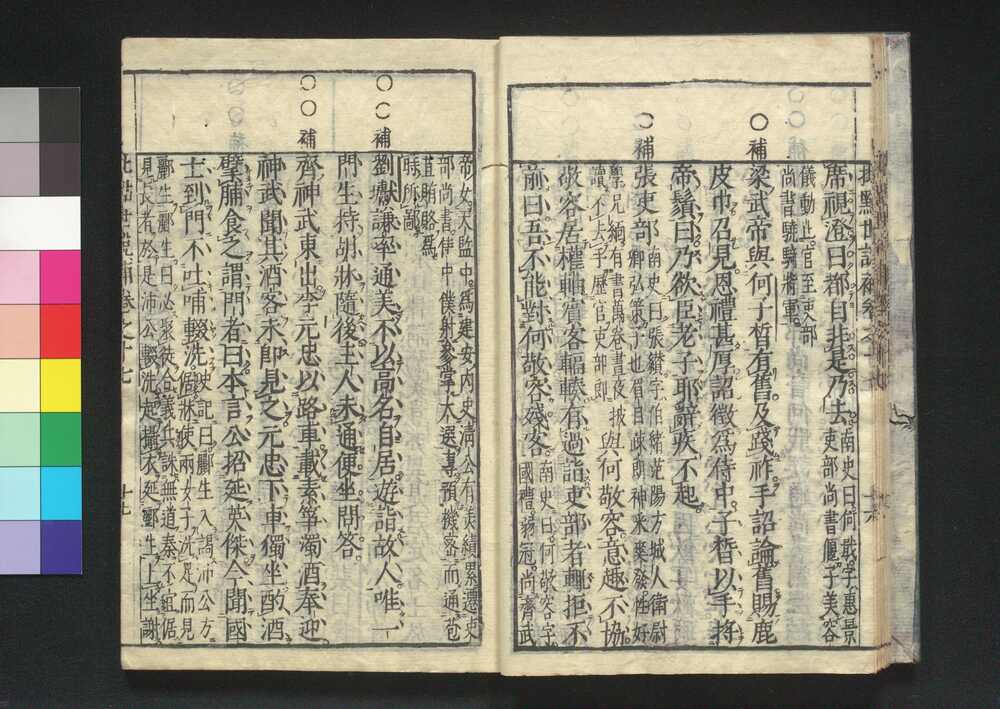 席視澄曰都自非是乃去南史曰何戢字惠景
吏部尚書偃子美容
儀動止官至吏部
尚書驍騎將軍
補
梁武帝與何子晳有舊及踐祚手詔論舊賜鹿
皮巾召見恩禮甚厚詔徵爲侍中子晳以手捋
帝鬚曰乃欲臣老子耶辭疾不起
補
張吏部南史曰張纘字伯緒范陽方城人衛尉
卿弘策子也眉目疎朗神采爽發性好
學兄緬有書萬卷晝夜披
讀不去手歷官吏部郎
與何敬容意趣不協
敬容居權軸賓客輻輳有過詣吏部者輒拒不
前曰吾不能對何敬容殘客南史曰何敬容字
國禮弱冠尚齊武
帝女天監中爲建安內史清公有美績累遷吏
部尚書侍中僕射參掌大選專預機密而通苞
苴賄賂爲
時所嗤
補
劉獻謙率通美不以高名自居遊詣故人唯一
門生持胡牀隨後主人未通便坐問答
補
齊神武東出李元忠以路車載素箏濁酒奉迎
神武聞其酒客未即見之元忠下車獨坐酌酒
擘脯食之謂門者曰本言公招延英傑今聞國
士到門不吐哺輟洗史記曰酈生入謁沛公方
倨牀使兩女子洗足而見
酈生酈生曰必聚徒合義兵誅無道秦不宜倨
見長者於是沛公輟洗起攝衣延酈生上坐謝